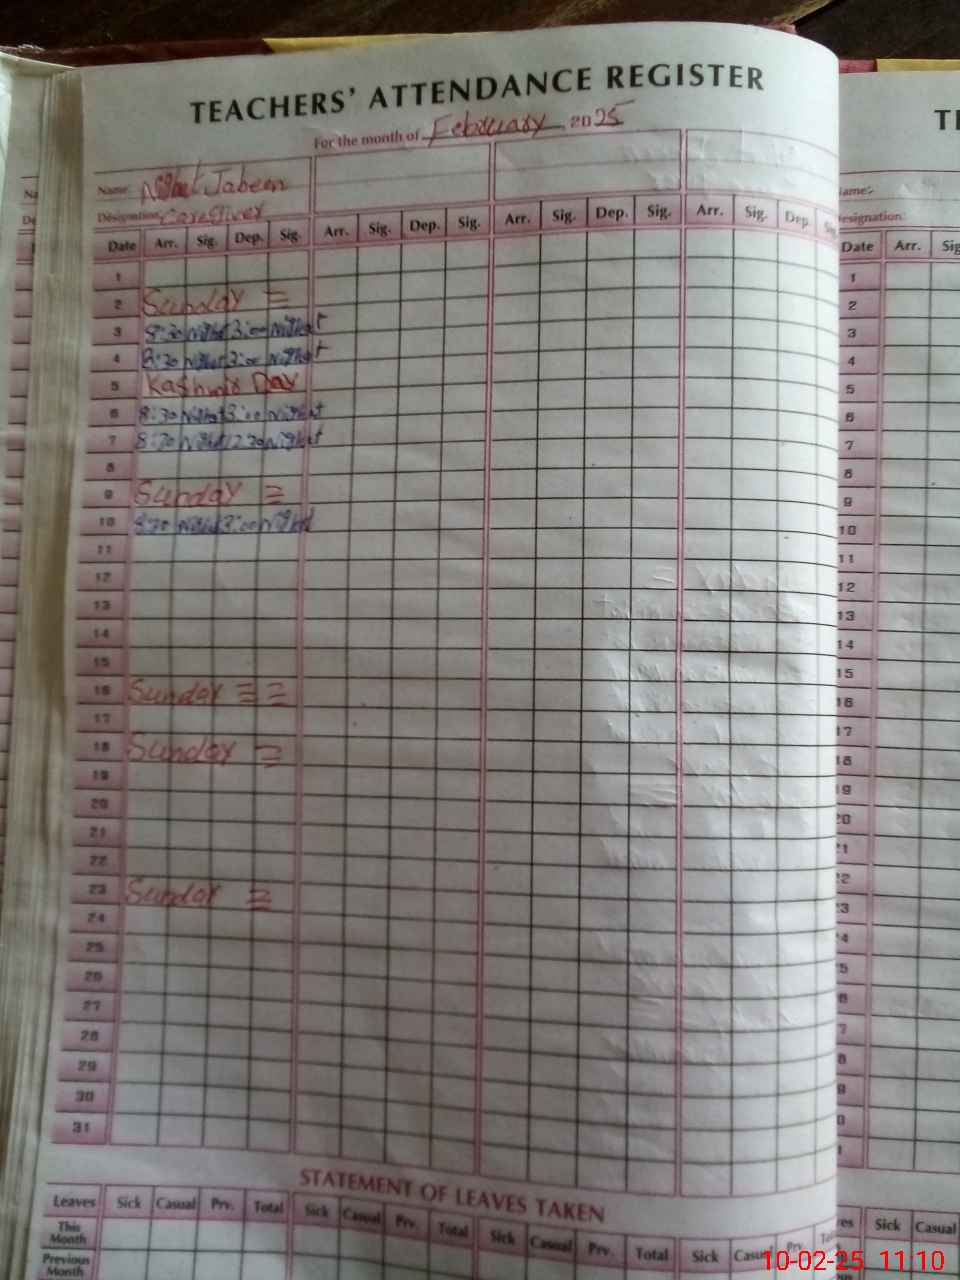 TEACHERS' ATTENDANCE REGISTER
For the month of February 2025
Name: Nighat Jabeen
Designation: Caregiver
Date Arr. Sig. Dep. Sig. Arr. Sig. Dep. Sig. Arr. Sig. Dep. Sig. Arr. Sig. Dep. Sig.
1
2 Sunday =
3 8:30 Nighat 3:00 Nighat
4 8:30 Nighat 3:00 Nighat
5 Kashmir Day
6 8:30 Nighat 3:00 Nighat
7 8:30 Nighat 12:30 Nighat
8
9 Sunday =
10 8:30 Nighat 3:00 Nighat
11
12
13
14
15
16 Sunday = =
17
18 Sunday =
19
20
21
22
23 Sunday =
24
25
26
27
28
29
30
31
STATEMENT OF LEAVES TAKEN
Leaves Sick Casual Prv. Total Sick Casual Prv. Total Sick Casual Prv. Total Sick Casual Prv.
This Month
Previous Month
ame:-
esignation:
Date Arr. Sig
1
2
3
4
5
6
7
8
9
10
11
12
13
14
15
16
17
18
19
Sick Casual
10-02-25 11:10